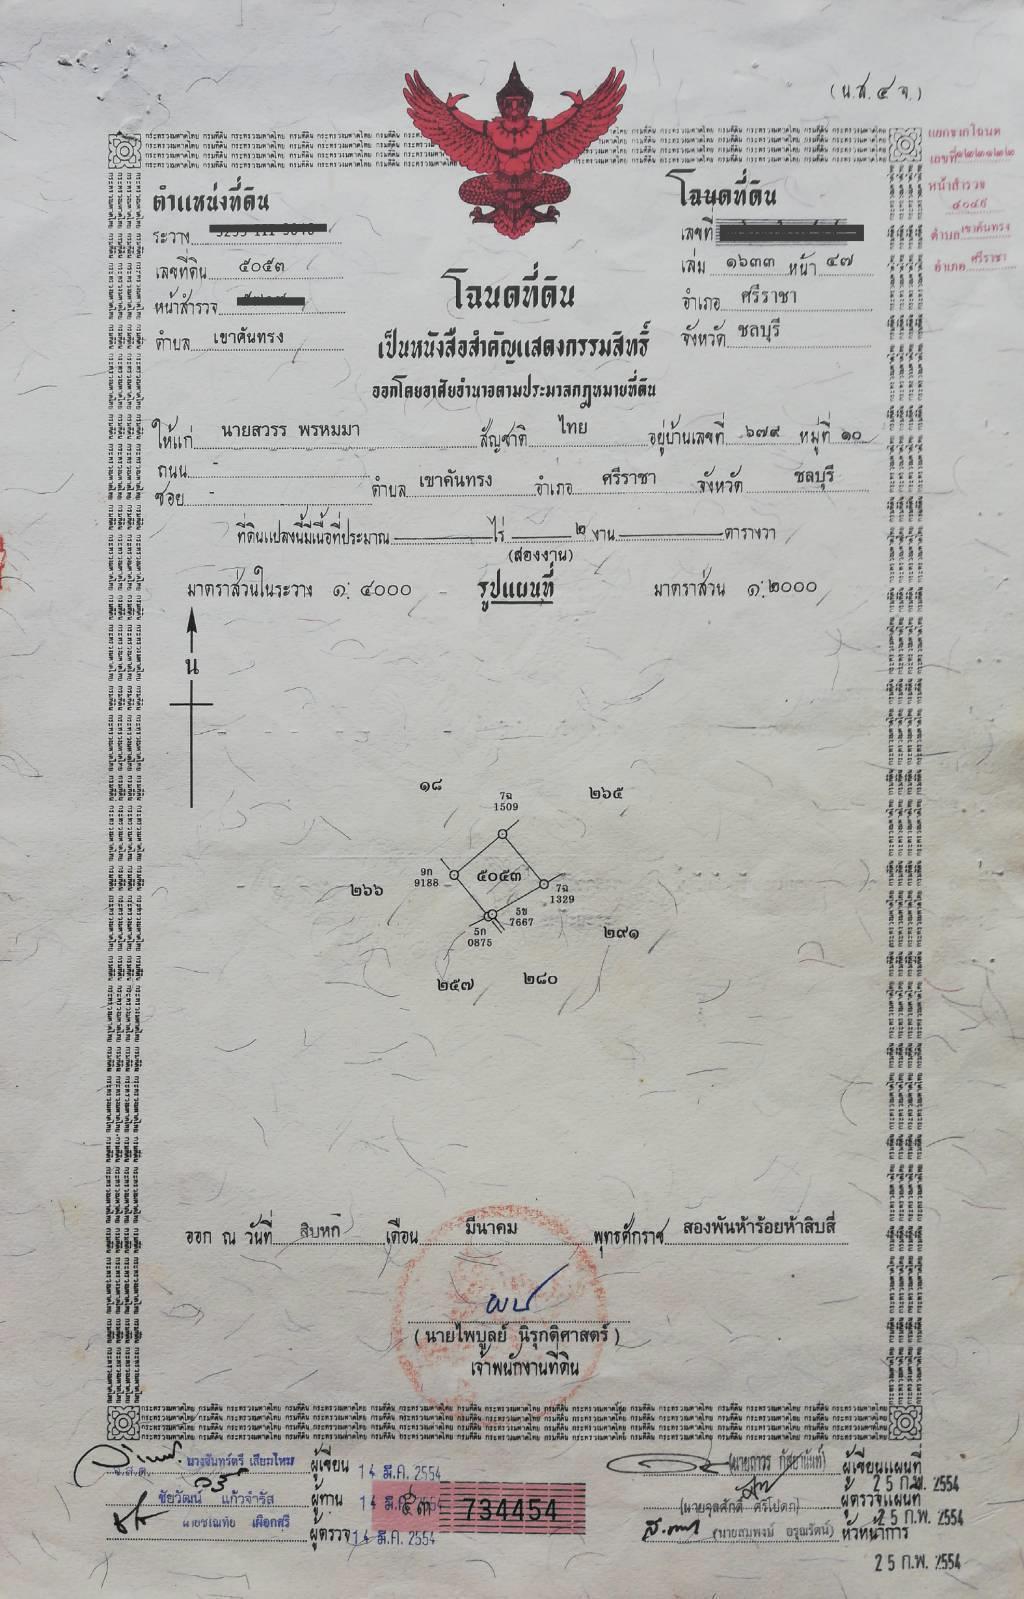 (น.ส.๔ จ.)
แยกจากโฉนด
เลขที่๑๒๒๑๒๒
หน้าสำรวจ
๔๐๔๙
ตำบลเขาคันทรง
อำเภอ ศรีราชา
ตำแหน่งที่ดิน
ระวาง
เลขที่ดิน ๕๐๕๓
หน้าสำรวจ
ตำบล เขาคันทรง
โฉนดที่ดิน
เลขที่
เล่ม ๑๖๓๓ หน้า ๔๗
อำเภอ ศรีราชา
จังหวัด ชลบุรี
โฉนดที่ดิน
เป็นหนังสือสำคัญแสดงกรรมสิทธิ์
ออกโดยอาศัยอำนาจตามประมวลกฎหมายที่ดิน
ให้แก่ นายสวรร พรหมมา สัญชาติ ไทย อยู่บ้านเลขที่ ๖๗๙ หมู่ที่ ๑๐
ถนน -
ซอย - ตำบล เขาคันทรง อำเภอ ศรีราชา จังหวัด ชลบุรี
ที่ดินแปลงนี้มีเนื้อที่ประมาณ ไร่ ๒ งาน ตารางวา
(สองงาน)
มาตราส่วนในระวาง ๑: ๔๐๐๐ รูปแผนที่ มาตราส่วน ๑:๒๐๐๐
น
๑๘
7ฉ
1509
๒๖๕
9ก
9188
๕๐๕๓
๒๖๖
7ฉ
1329
5ข
7667
5ก
0875
๒๙๑
๒๕๗
๒๘๐
ออก ณ วันที่ สิบหก เดือน มีนาคม พุทธศักราช สองพันห้าร้อยห้าสิบสี่
(นายไพบูลย์ นิรุกติศาสตร์)
เจ้าพนักงานที่ดิน
จ.ส.ต. นางจันทร์ตรี เสียมไหม ผู้เขียน 14 มี.ค. 2554
ชัยวัฒน์ แก้วจำรัส ผู้ทาน 14 มี.ค. 2554
เผือกศรี ผู้ตรวจ 14 มี.ค. 2554
๕๓ 734454
(นายถาวร กัลยานันท์) ผู้เขียนแผนที่
25 ก.พ. 2554
(นายจุลศักดิ์ ศรีโปดก) ผู้ตรวจแผนที่
25 ก.พ. 2554
(นายสมพงษ์ อรุณรัตน์) หัวหน้าการ
25 ก.พ. 2554